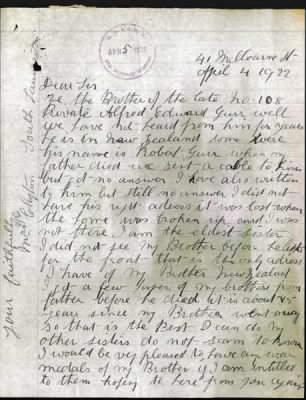 41 Melbourne St
April 4 1922
Dear Sir
Re, the Brother of the late no 108
Private Alfred Edward Gurr well
we have not heard from him for years
he is in new Zealand some where
his name is Robert Gurr when my
father died we sent a cable to him
but got no answer I have also written
to him but still no answer I did not
have his right adress it was lost when
the home was broken up and I was
not there I am the eldest sister
I did not see my Brother before he left
for the front that is the only adress
I have of my Brother New Zealand
I got a few paper of my brothers from
father before he died it is about
years since my Brother went away
so that is the Best I can do my
other sisters do not seam to know
I would be vey pleased to have any war
medals of my Brother if I am intitled
to them hoping to here from you again
your faithfully
Mrs Clayton South Launceston
APR 5 1922